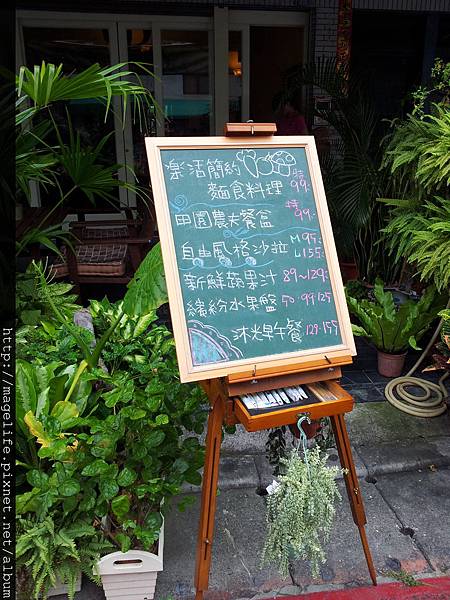 樂活簡約
麵食料理 特99.
田園農夫餐盒 特99.
自由風格沙拉 M95. L155.
新鮮蔬果汁 89~129.
繽紛水果盤 70.99.125
沐光早午餐 129.159
http://magelife.pixnet.net/album